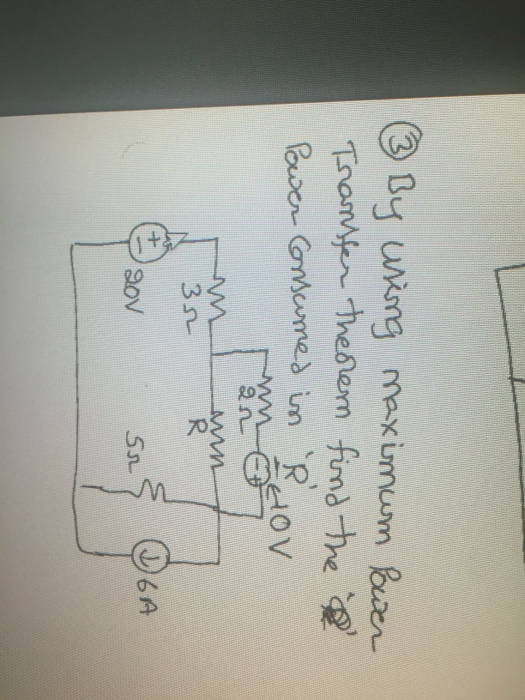 ③ By using maximum Power
Transfer theorem find the
Power Consumed in 'R'
10V
2Ω
3Ω
R
+
-
20V
5Ω
6A